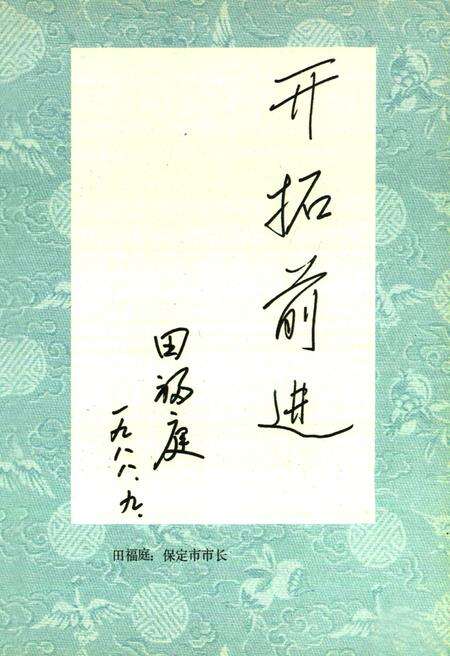 开拓前进
田福庭
一九八八.九.
田福庭：保定市市长